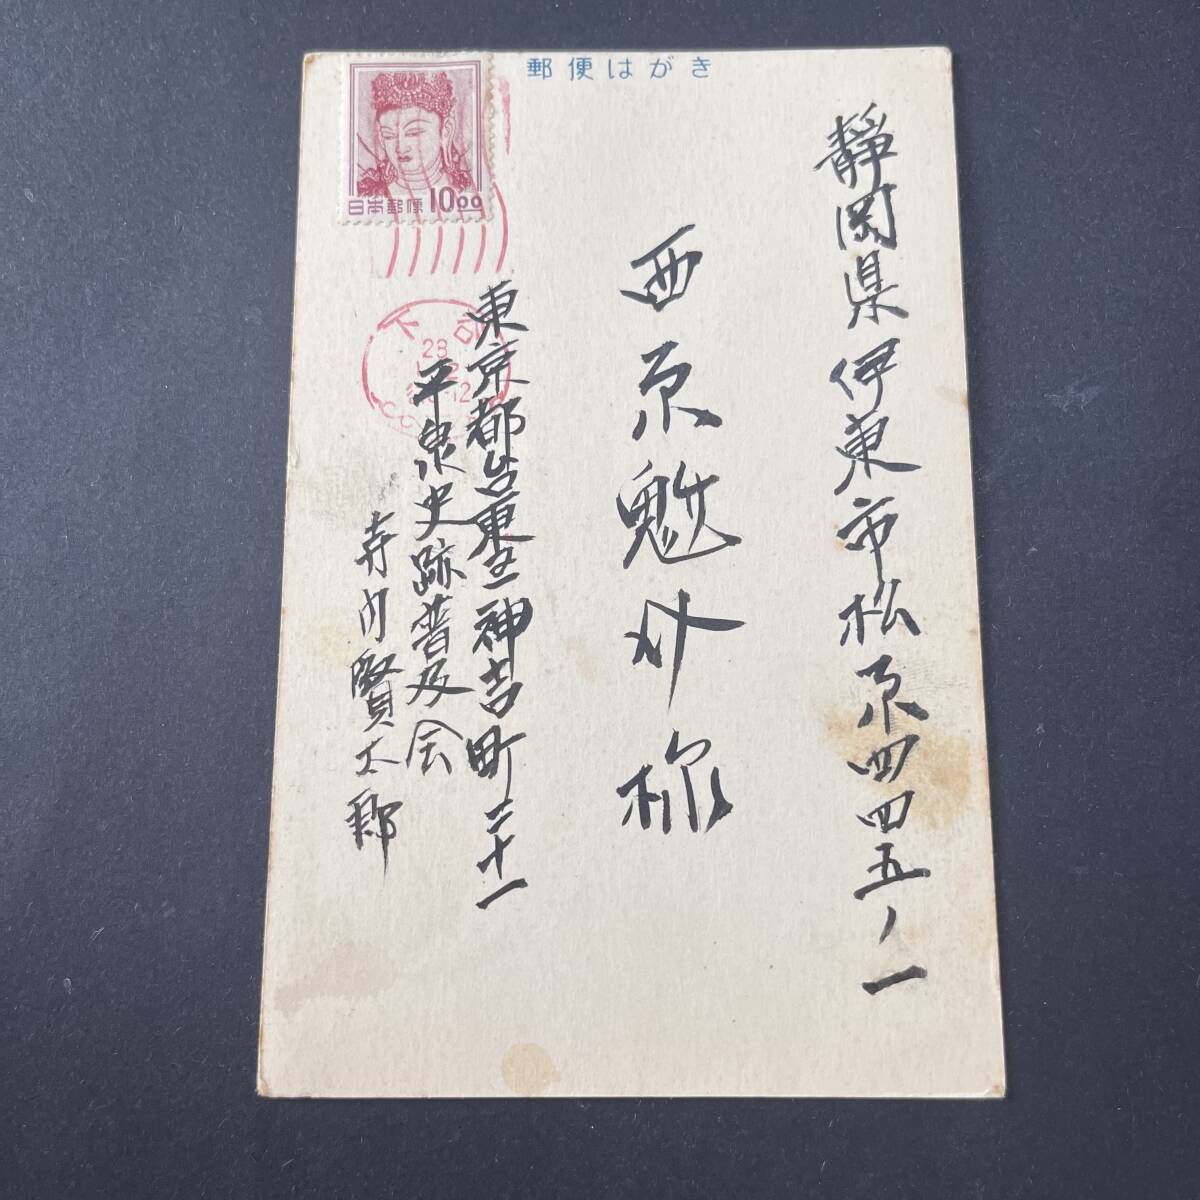 郵便はがき
日本郵便 10.00
静岡県伊東市松原四四五ノ一
西原魁
東京都台東区神吉町二十一
平泉史跡普及会
寺内賢太郎
下谷
23
12